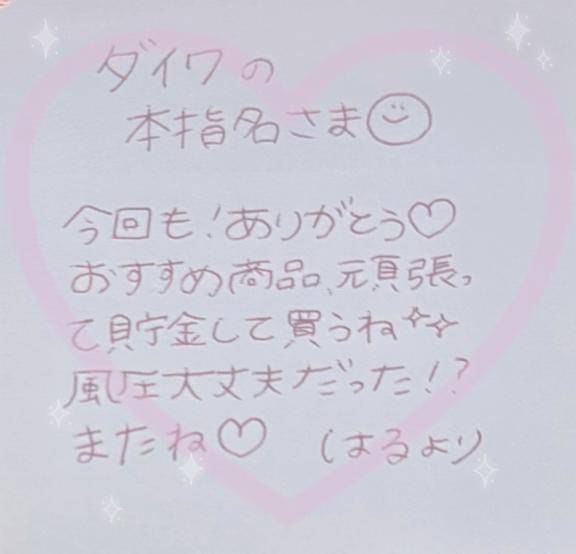 ダイワの
本指名さま
今回も！ありがとう♡
おすすめ商品、頑張っ
て貯金して買うね✨
風圧大丈夫だった！？
またね♡ はるより